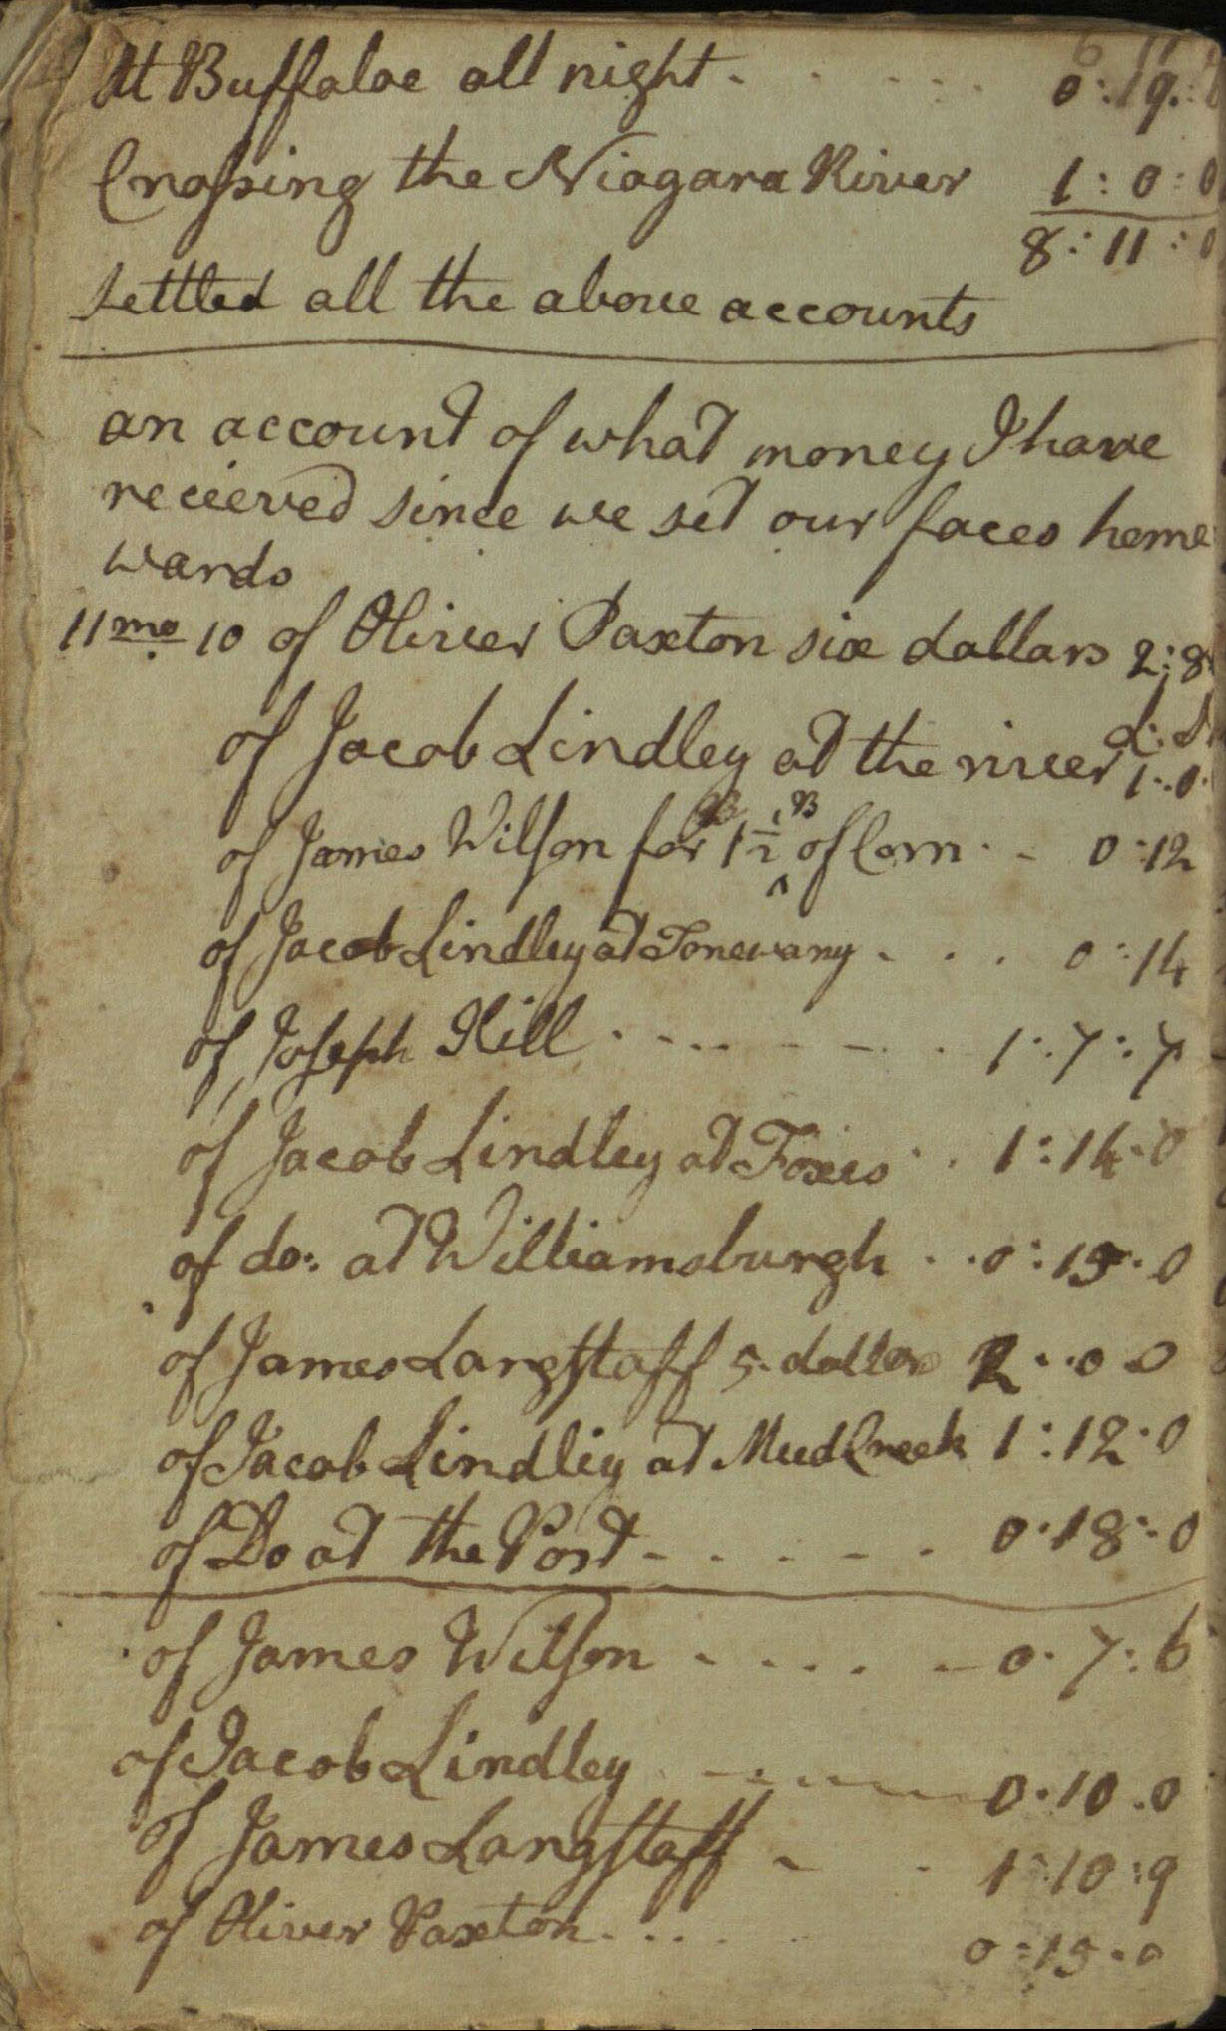 6 11
At Buffaloe all night - . . . . 0:19:0
Crossing the Niagara River 1:0:0
8:11:0
settled all the above accounts
an account of what money I have
recieved since we set our faces home
wards
11mo 10 of Oliver Paxton six dollars 2:8
of Jacob Lindley at the river 1:0
of James Wilson for 1 1/2 B of Corn . - 0:12
of Jacob Lindley at Tonewany . . . . 0:14
of Joseph Hill . - . . - - . 1:7:7
of Jacob Lindley at Foxes . . 1:14:0
of do: at Williamsburgh . . . 0:15.0
of James Langstaff 5 dollars 2..0 0
of Jacob Lindley at Mud Creek 1:12:0
of Do at the Post - . . . - . 0.18:0
of James Wilson . . . . . - 0.7:6
of Jacob Lindley 0.10.0
of James Langstaff - . 1:10:9
of Oliver Paxton . . . . 0:15.0